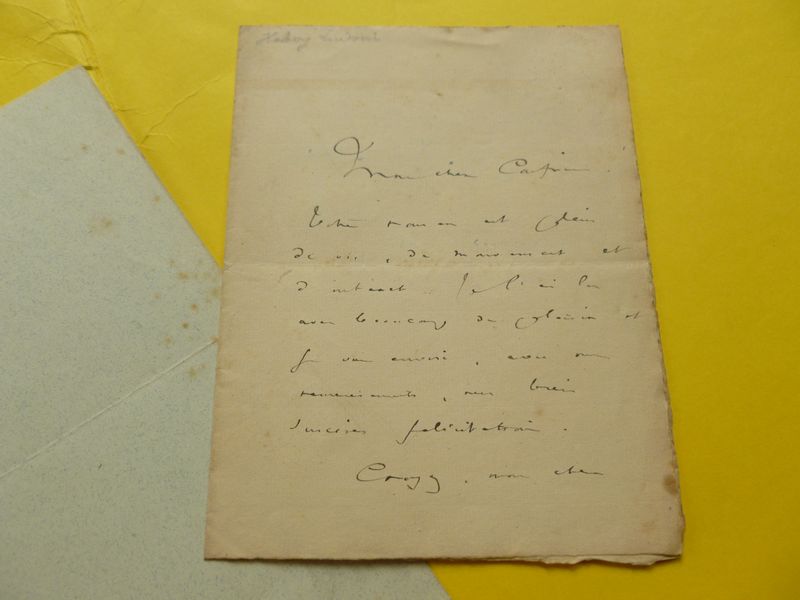 Halévy Ludovic
Mon cher
Votre roman est plein
de vie, de mouvement et
d'intérêt. Je l'ai lu
avec beaucoup de plaisir et
je vous envoie, avec mes
remerciements, mes bien
sincères félicitations.
Croyez, mon cher